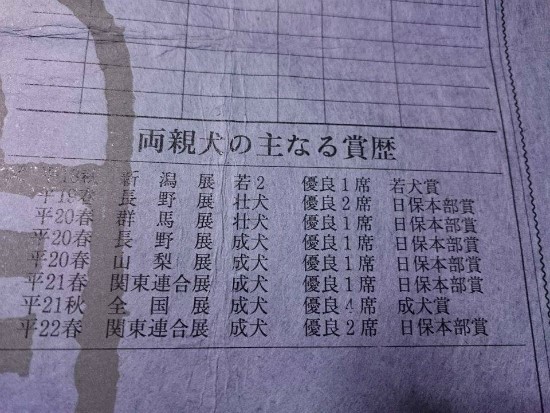 両親犬の主なる賞歴
秋 新潟展 若2 優良1席 若犬賞
平19春 長野展 壮犬 優良2席 日保本部賞
平20春 群馬展 壮犬 優良1席 日保本部賞
平20春 長野展 成犬 優良1席 日保本部賞
平20春 山梨展 成犬 優良1席 日保本部賞
平21春 関東連合展 成犬 優良1席 日保本部賞
平21秋 全国展 成犬 優良4席 成犬賞
平22春 関東連合展 成犬 優良2席 日保本部賞